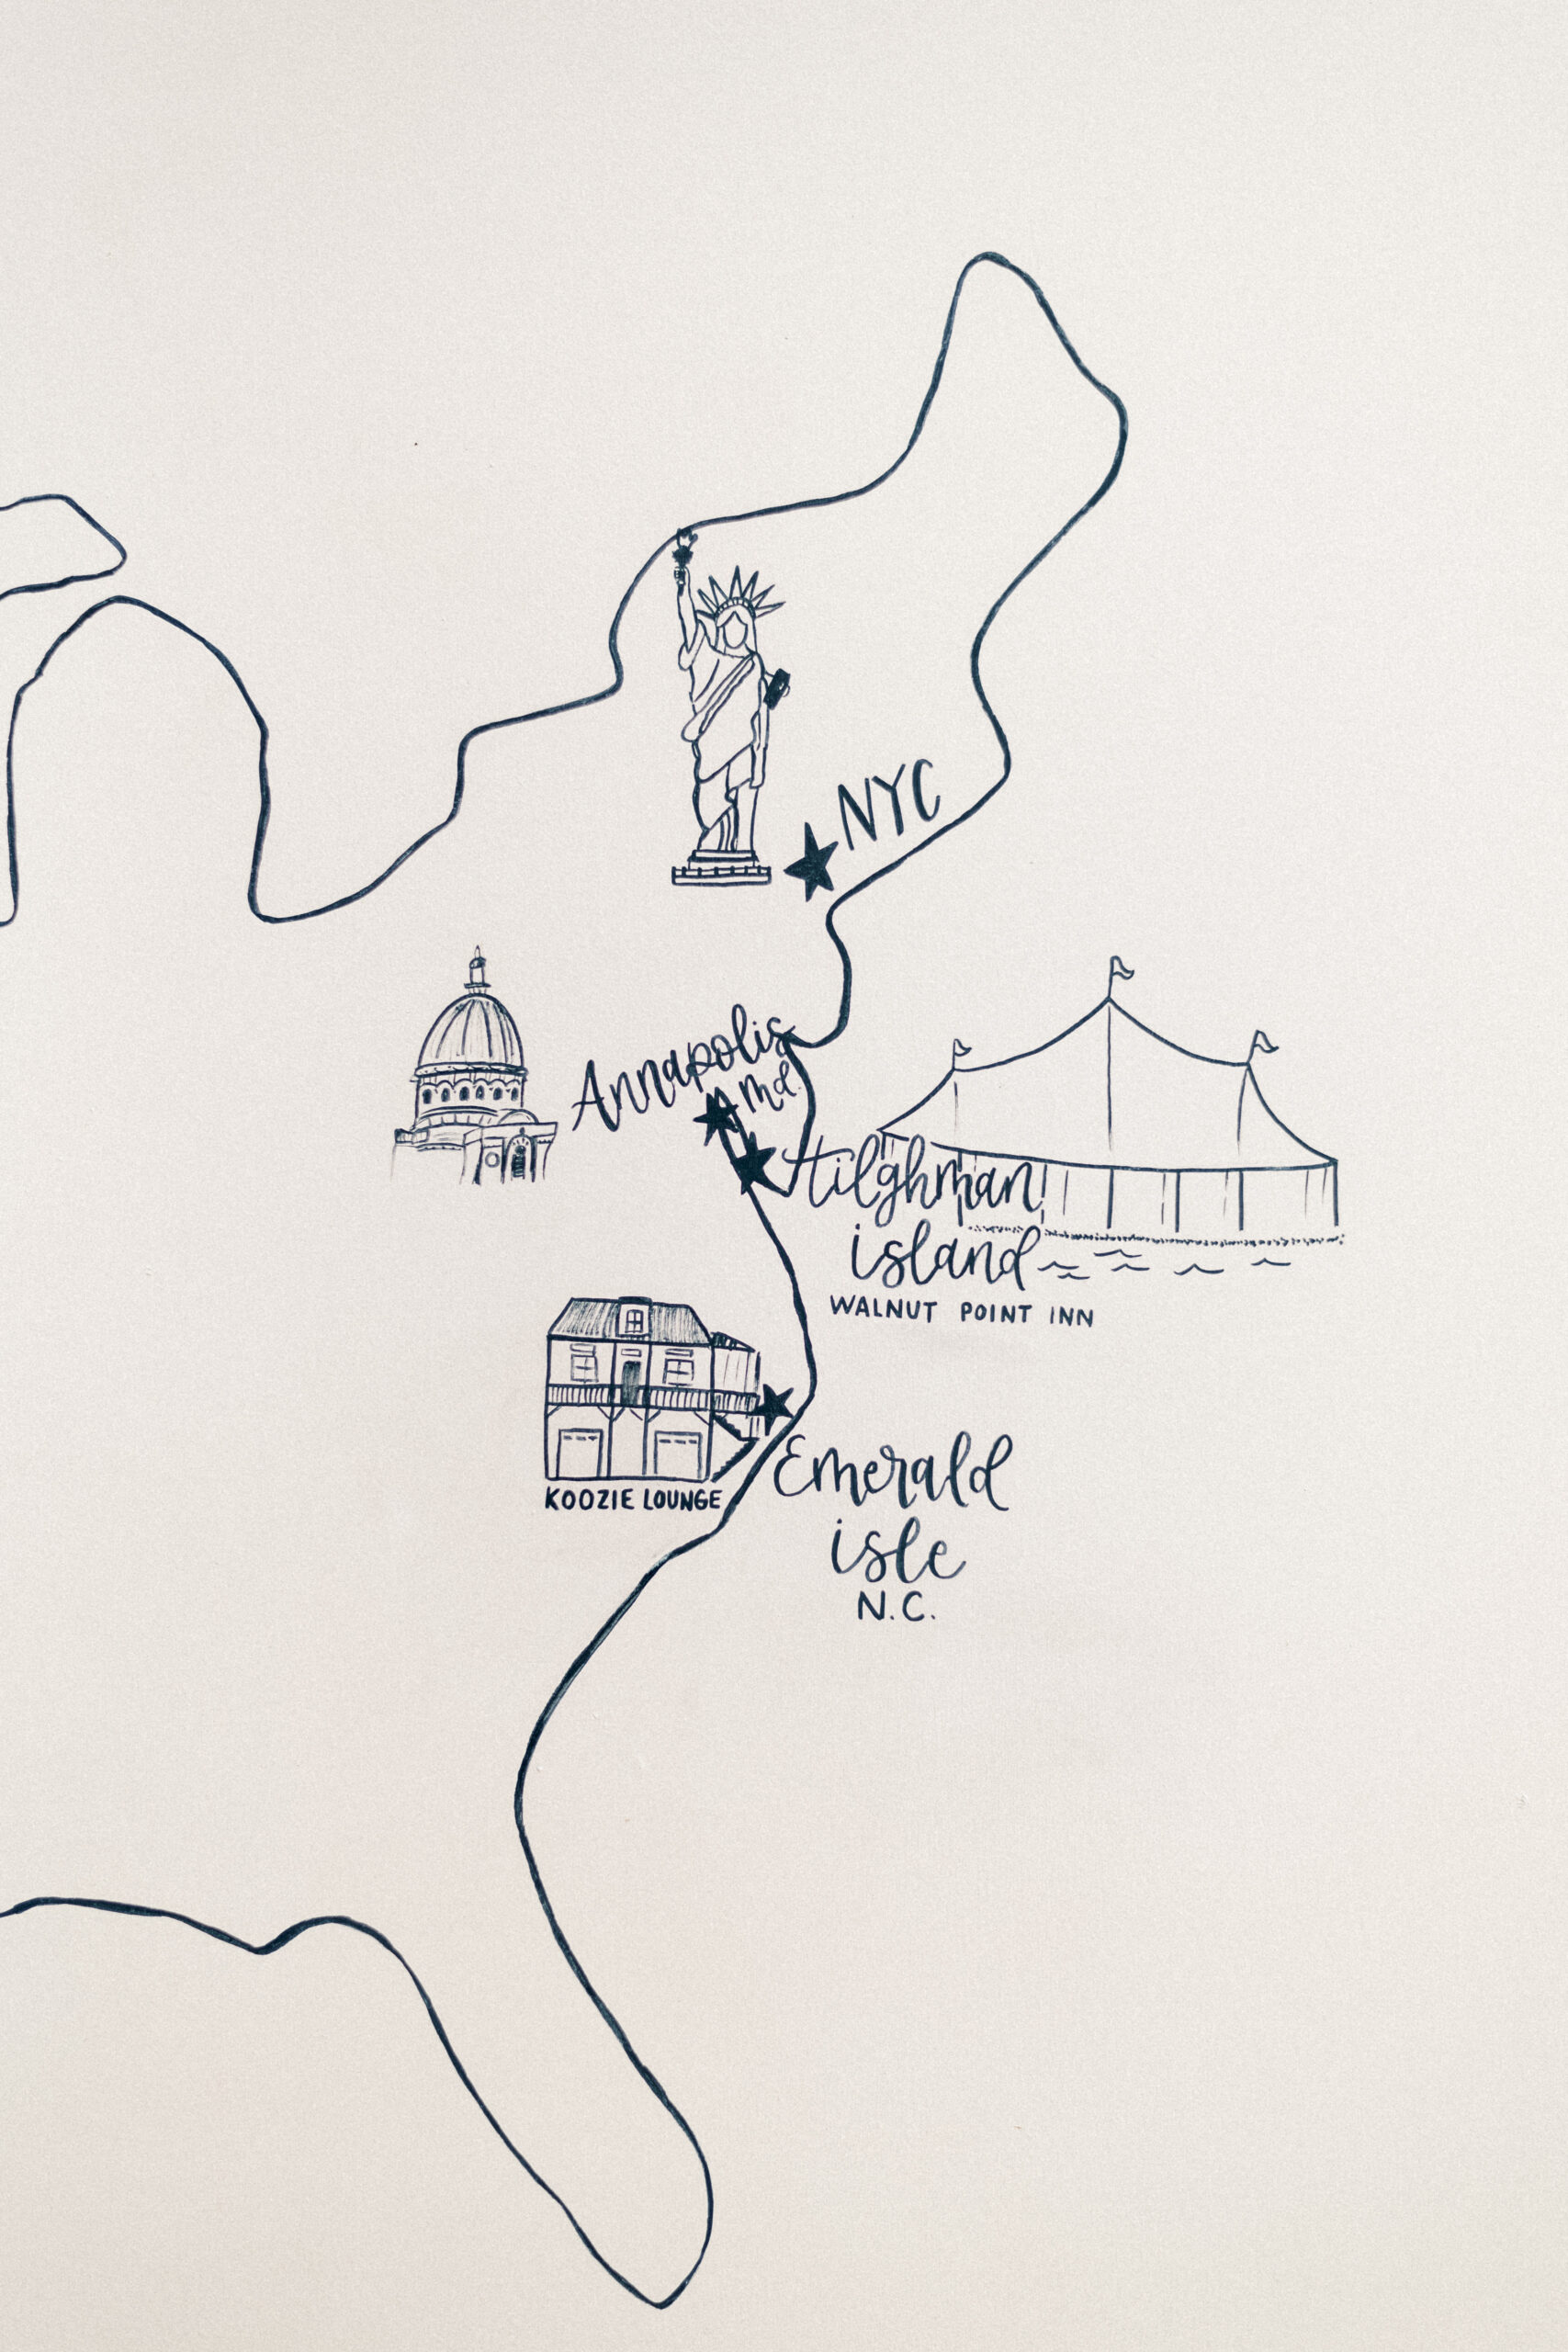 NYC
Annapolis
Md.
tilghman
island
WALNUT POINT INN
KOOZIE LOUNGE
Emerald
isle
N.C.